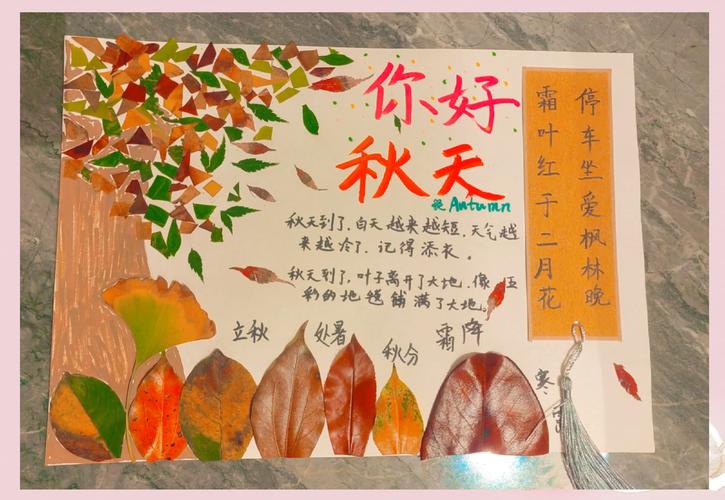 你好
秋天
Autumn
秋天到了,白天越来越短,天气越
来越冷了,记得添衣。
秋天到了,叶子离开了大地,像五
彩的地毯铺满了大地。
停车坐爱枫林晚
霜叶红于二月花
立秋
处暑
秋分
霜降
寒